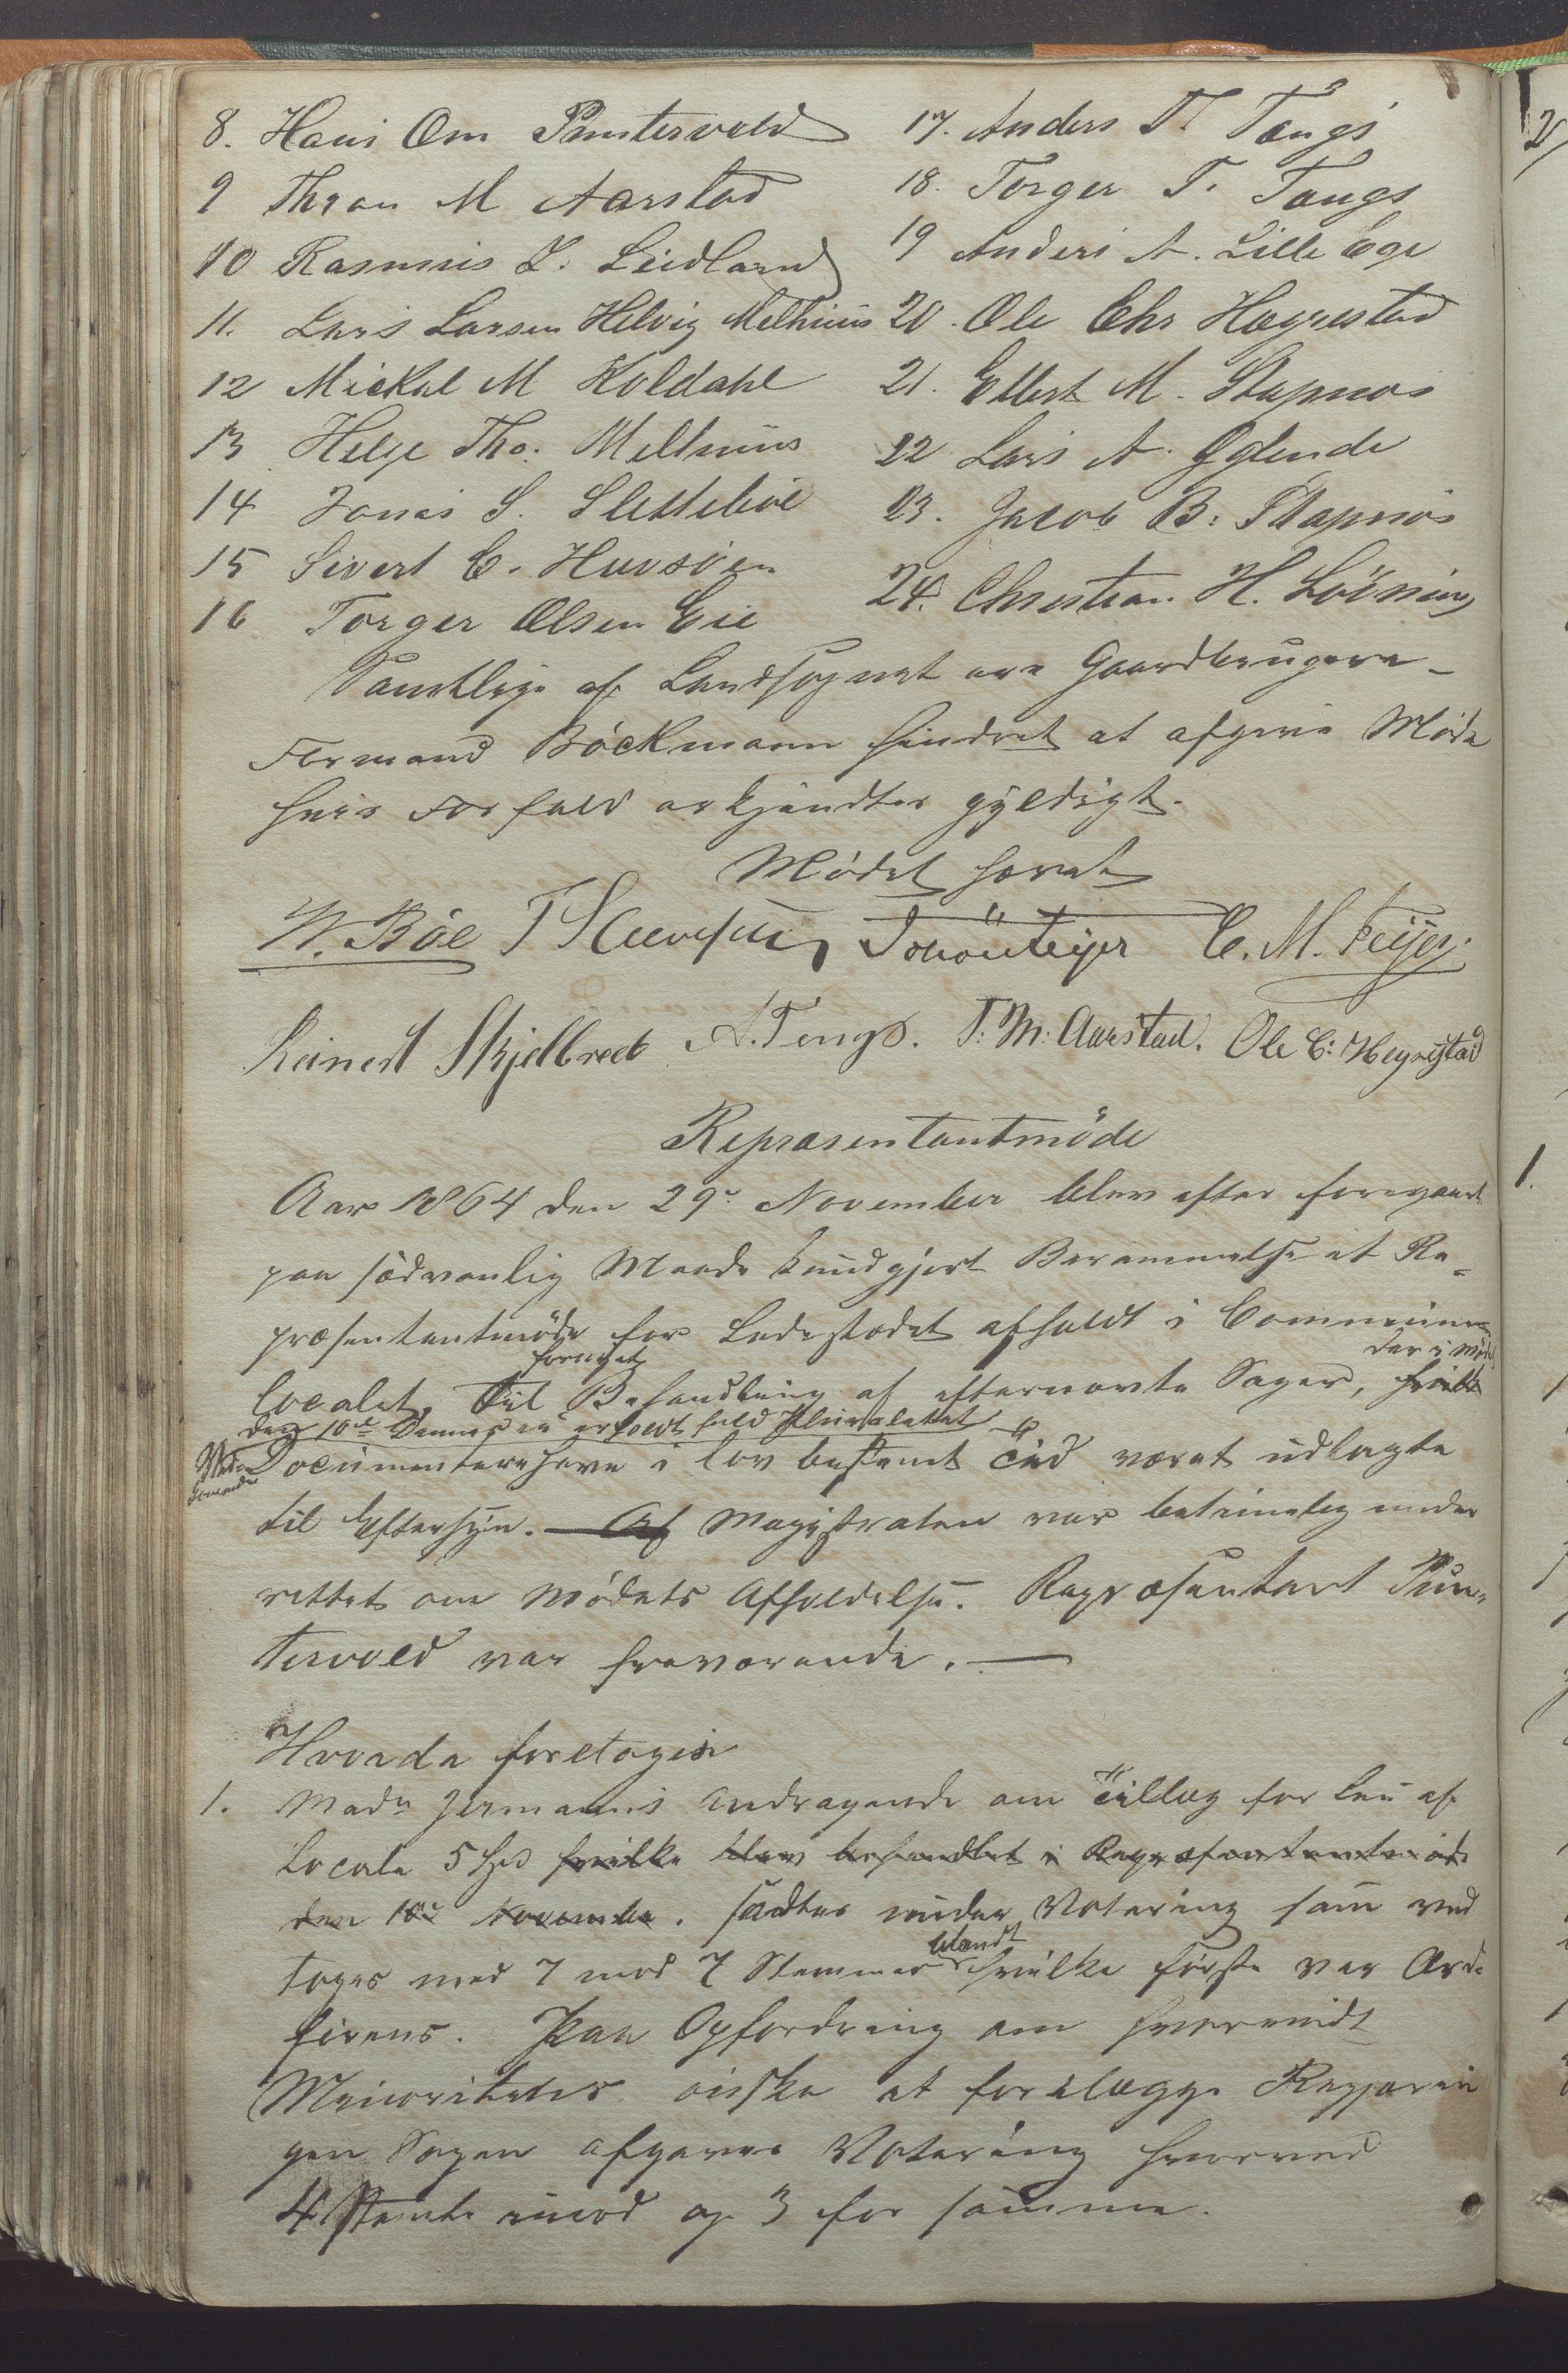 8. Hans Om Puntervold
9 Thron M Aarstad
10 Rasmus L. Leidland
11. Lars Larsen Helvig Melhuus
12 Mickal M Koldahl
13 Helge Tho. Melhuus
14 Jonas S. Slettebøe
15 Sivert C. Huvsøen
16 Torger Olsen Eie
17. Anders T. Tengs
18. Torger T. Tengs
19 Anders A. Lille Ege
20. Ole Chr Hegrestad
21. Elbert M. Stapnøs
22 Lars A. Gjlende
23. Jacob B. Stapnøs
24. Christian H. Løvning
Samtlige af Landsognet ere Gaardbrugere_
Formand Böckmann hindret at afgive Möde
hvis Forfald erkjendtes gyldigt.
Mødet hævet
W. Böe C. M. Feyer
Reinert Skjelbred A. Tengs. T. M. Aarstad. Ole C. Hegrestad
Repræsentantmöde
Aar 1864 den 29de November blev efter foregaaet
paa sædvanlig Maade kundgjort Berammelse et Re=
præsentantmöde for Ladestedet afholdt i Commune
foretaget der i Mödet
localet, Til Behandling af efternævte Sager, hvilke
den 10de Dennes ei erholdt fuld Pluralitet
Documenterne have i lov bestemt Tid været udlagte
til Eftersyn. — Af Magistraten var betimelig under
rettet om Mødets Afholdelse. Repræsentant Pun-
tervold var fraværende. —
Hvorda foretoges
1. Madm Jermanns Andragende om Tillæg for Leie af
Locale 5 Spd hvilke blev behandlet i Repræsentantmöde
den 10de November. sattes under Votering som ved
blandt
toges med 7 mod 7 Stemmer hvilke første var Ord-
førens. Paa Opfordring om hvorvidt
Minoriteten ønske at forelægge Regjerin
gen Sagen afgaves Votering hvorved
4 stemte imod og 3 for samme.